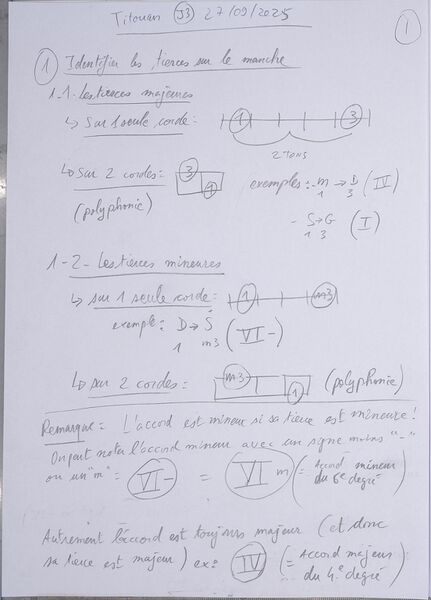 Titouan J3 27/09/2025
1
1 Identifier les tierces sur le manche
1-1-Les tierces majeures
↳ Sur 1 seule corde: 1 3
2 TONS
↳ Sur 2 cordes: 3 1 exemples: - m → D (IV)
1 3
(polyphonie)
- S→G (I)
1 3
1-2- Les tierces mineures
↳ sur 1 seule corde: 1 m3
exemple: D → S (VI-)
1 m3
↳ sur 2 cordes: m3 1 (polyphonie)
Remarque: L'accord est mineur si sa tierce est mineure!
On peut noter l'accord mineur avec un signe moins "-"
ou un "m" = VI- = VI m (= Accord mineur
du 6e degré)
Autrement l'accord est toujours majeur (et donc
sa tierce est majeur) ex: IV (= Accord majeur
du 4e degré)